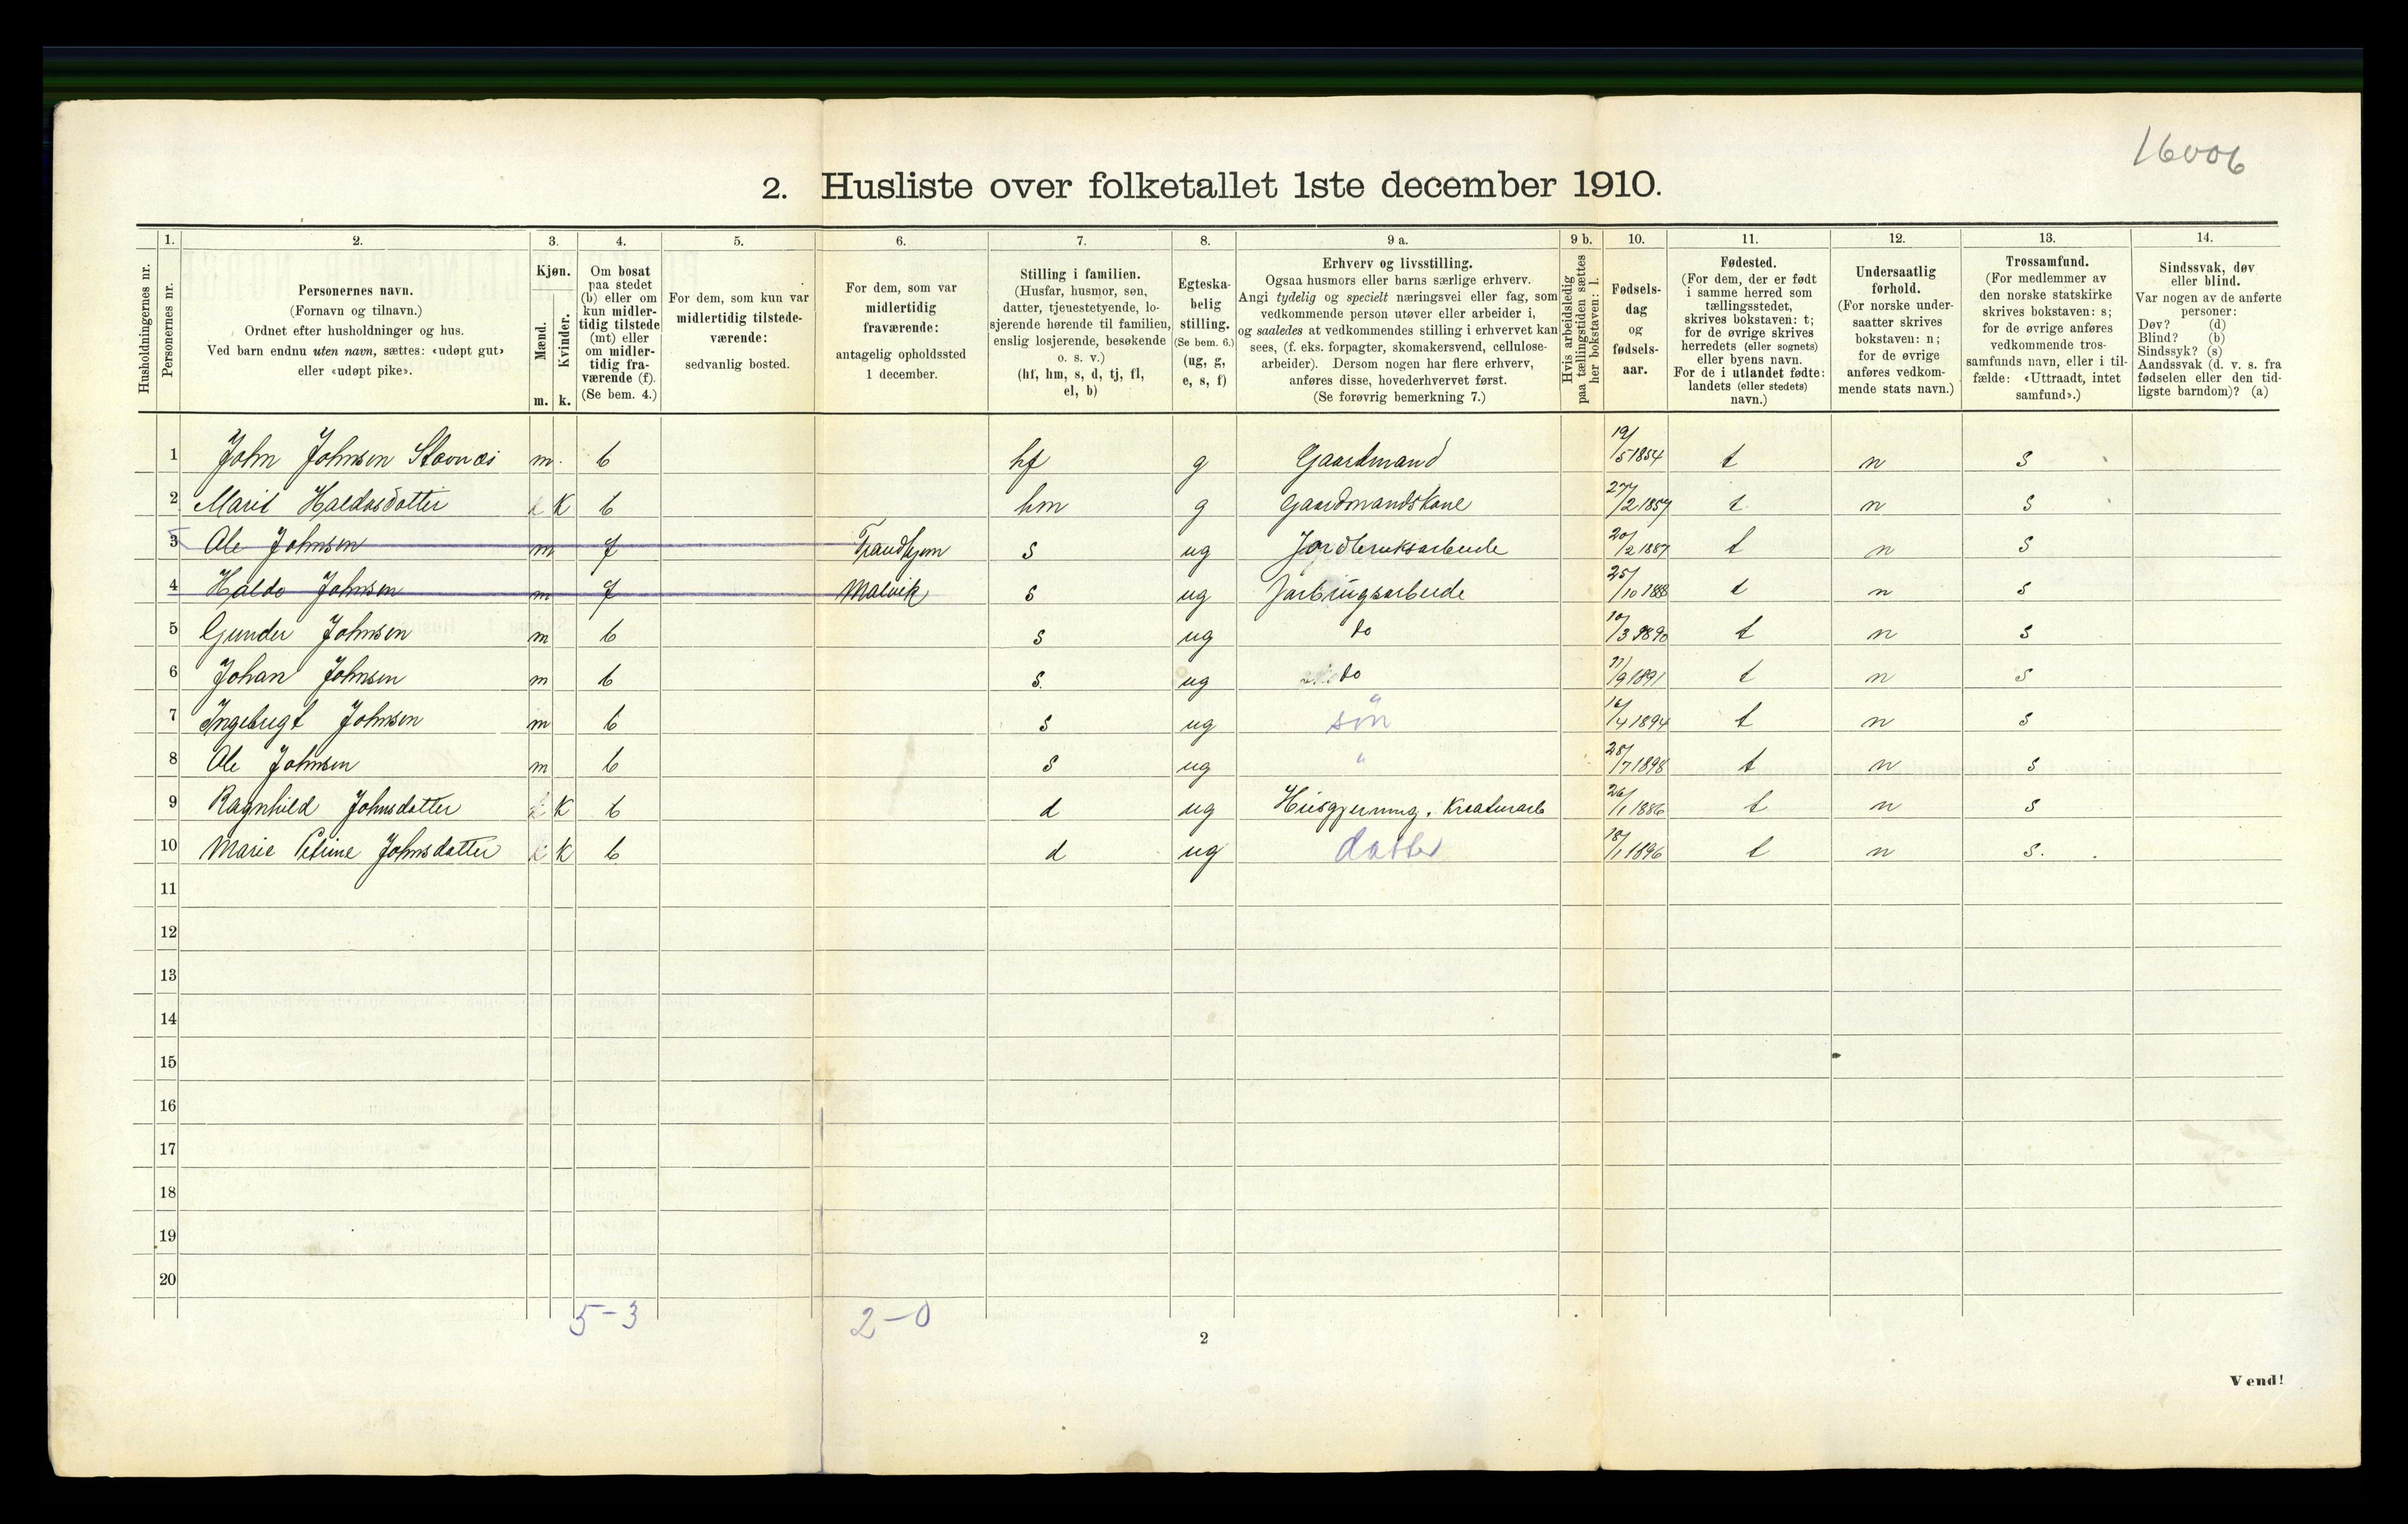 16006
2. Husliste over folketallet 1ste december 1910.
Husholdningernes nr.
1. Personernes nr.
2. Personernes navn.
(Fornavn og tilnavn.)
Ordnet efter husholdninger og hus.
Ved barn endnu uten navn, sættes: «udøpt gut»
eller «udøpt pike».
3. Kjøn.
Mænd. m.
Kvinder. k.
4. Om bosat
paa stedet
(b) eller om
kun midler-
tidig tilstede
(mt) eller
om midler-
tidig fra-
værende (f).
(Se bem. 4.)
5. For dem, som kun var
midlertidig tilstede-
værende:
sedvanlig bosted.
6. For dem, som var
midlertidig
fraværende:
antagelig opholdssted
1 december.
7. Stilling i familien.
(Husfar, husmor, søn,
datter, tjenestetyende, lo-
sjerende hørende til familien,
enslig losjerende, besøkende
o. s. v.)
(hf, hm, s, d, tj, fl,
el, b)
8. Egteska-
belig
stilling.
(Se bem. 6.)
(ug, g,
e, s, f)
9 a. Erhverv og livsstilling.
Ogsaa husmors eller barns særlige erhverv.
Angi tydelig og specielt næringsvei eller fag, som
vedkommende person utøver eller arbeider i,
og saaledes at vedkommendes stilling i erhvervet kan
sees, (f. eks. forpagter, skomakersvend, cellulose-
arbeider). Dersom nogen har flere erhverv,
anføres disse, hovederhvervet først.
(Se forøvrig bemerkning 7.)
9 b. Hvis arbeidsledig
paa tællingstiden sættes
her bokstaven: l.
10. Fødsels-
dag
og
fødsels-
aar.
11. Fødested.
(For dem, der er født
i samme herred som
tællingsstedet,
skrives bokstaven: t;
for de øvrige skrives
herredets (eller sognets)
eller byens navn.
For de i utlandet fødte:
landets (eller stedets)
navn.)
12. Undersaatlig
forhold.
(For norske under-
saatter skrives
bokstaven: n;
for de øvrige
anføres vedkom-
mende stats navn.)
13. Trossamfund.
(For medlemmer av
den norske statskirke
skrives bokstaven: s;
for de øvrige anføres
vedkommende tros-
samfunds navn, eller i til-
fælde: «Uttraadt, intet
samfund».)
14. Sindssvak, døv
eller blind.
Var nogen av de anførte
personer:
Døv? (d)
Blind? (b)
Sindssyk? (s)
Aandssvak (d. v. s. fra
fødselen eller den tid-
ligste barndom)? (a)
1 John Johnsen Stavnæs m. b hf g Gaardmand 19/5 1854 t n s
2 Marit Haldosdatter k b hm g Gaardmandskone 27/2 1857 t n s
3 Ole Johnsen m f Trondhjem s ug Jordbruksarbeide 20/2 1887 t n s
4 Haldo Johnsen m f Malvik s ug Jorbrugsarbeide 25/10 1888 t n s
5 Gunder Johnsen m b s ug do 10/3 1890 t n s
6 Johan Johnsen m b s. ug do 11/9 1891 t n s
7 Ingebrigt Johnsen m b s ug søn 16/4 1894 t n s
8 Ole Johnsen m b s ug " 28/7 1898 t n s
9 Ragnhild Johnsdatter k b d ug Husgjerning. Kreaturarb 26/1 1886 t n s
10 Marie Petrine Johnsdatter k b d ug datter 18/1 1896 t n s.
11
12
13
14
15
16
17
18
19
20
5-3 2-0
2
Vend!